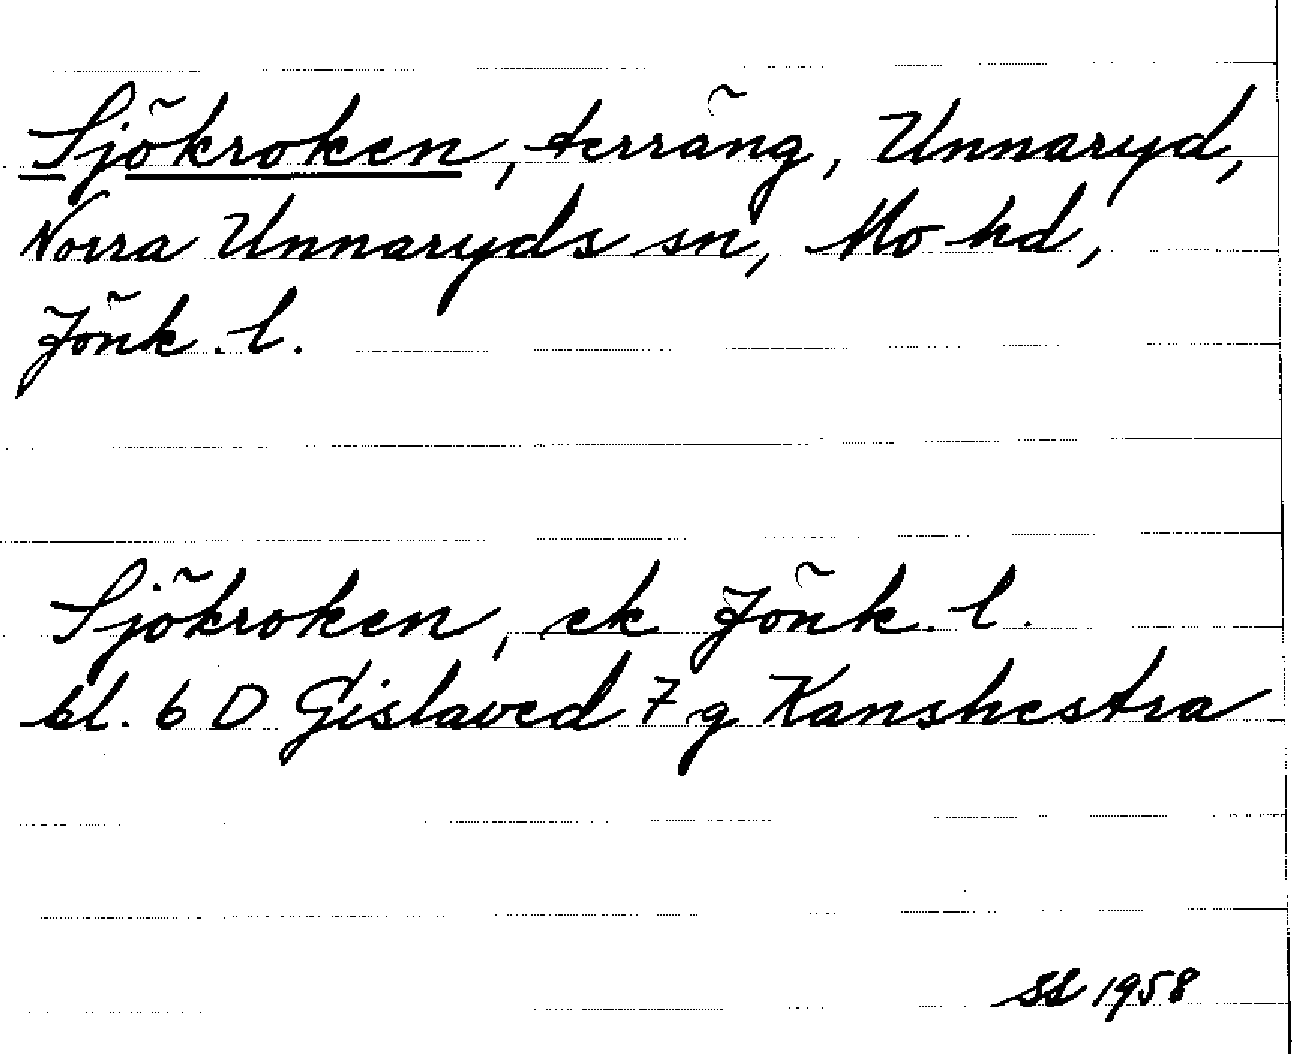 Sjökroken, terräng, Unnaryd,
Norra Unnaryds sn, Mo hd,
Jönk. l.
Sjökroken, ek Jönk. l.
bl. 6 D Gislaved 7 g Kanshestra
SL 1958